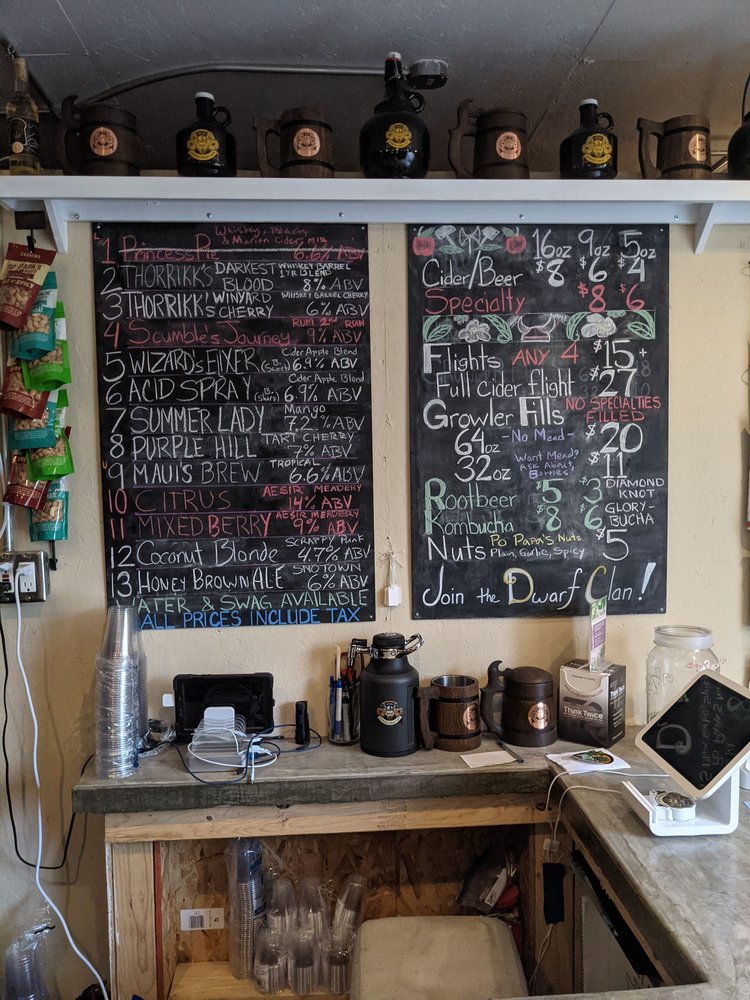 Whiskey, Peach,
& Marion Cider Mix
1 Princess Pie 6.6% ABV
2 THORRIKK'S DARKEST BLOOD WHISKEY BARREL BLEND 8% ABV
3 THORRIKK'S WINYARD CHERRY WHISKEY BARREL CHERRY 6% ABV
4 Scumble's Journey RUM 2nd RUN 9% ABV
5 WIZARD'S ELIXER Cider Apple Blend 6.9% ABV
6 ACID SPRAY Cider Apple Blend 6.9% ABV
7 SUMMER LADY Mango 7.2% ABV
8 PURPLE HILL TART CHERRY 7% ABV
9 MAUI'S BREW TROPICAL 6.6% ABV
10 CITRUS AESIR MEADERY 14% ABV
11 MIXED BERRY AESIR MEADERY 9% ABV
12 Coconut Blonde SCRAPPY PUNK 4.7% ABV
13 HONEY BROWN ALE SNOTOWN 6% ABV
ATER & SWAG AVAILABLE
ALL PRICES INCLUDE TAX
16oz 9oz 5oz
Cider/Beer $8 $6 $4
Specialty $8 $6
Flights ANY 4 $15+
Full cider flight $27
Growler Fills NO SPECIALTIES FILLED
64oz - No Mead - $20
32oz Want Mead? Ask About Bottles! $11
Rootbeer $5 $3 DIAMOND KNOT
Kombucha $8 $6 GLORY-BUCHA
Nuts Po Papa's Nuts Plain, Garlic, Spicy $5
Join the Dwarf Clan!
CASHEWS
Think Twice